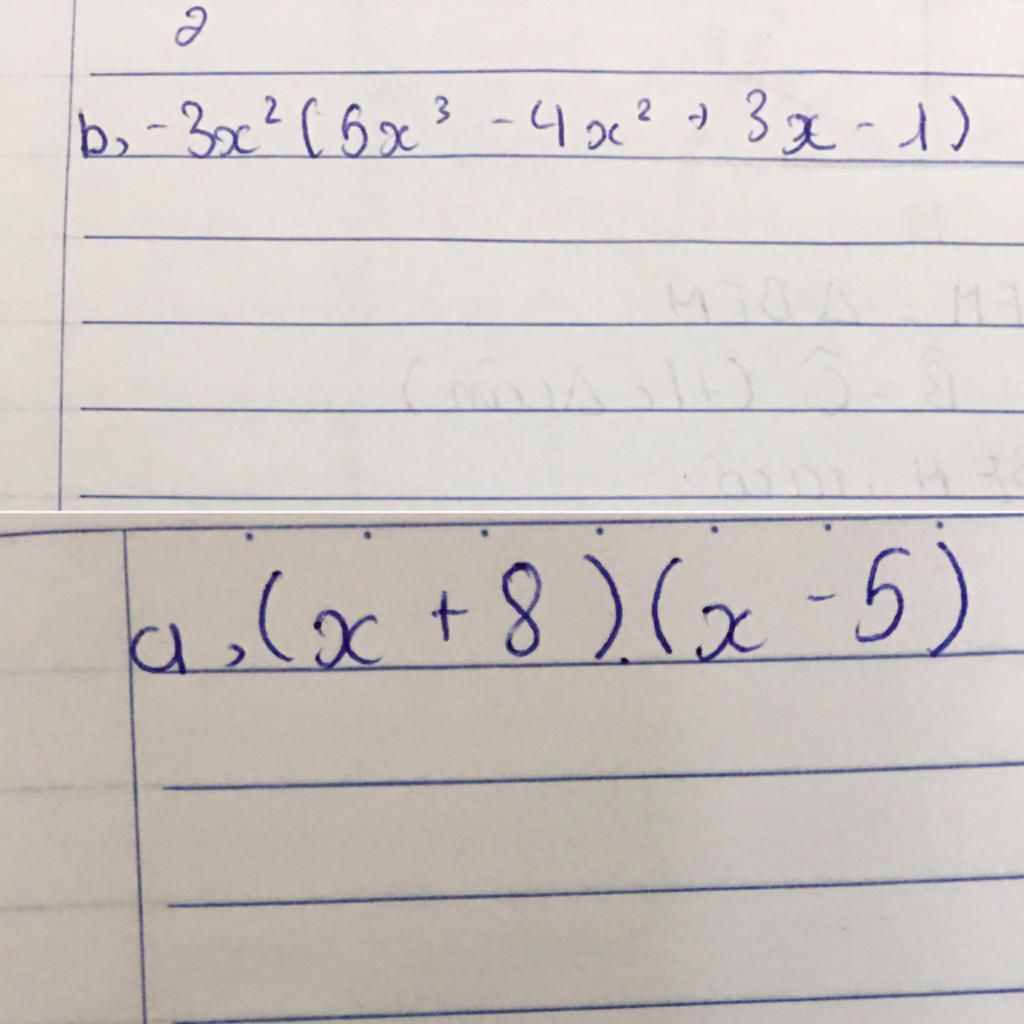 2
b, -3x² (5x³ - 4x² + 3x - 1)
a, (x + 8).(x - 5)